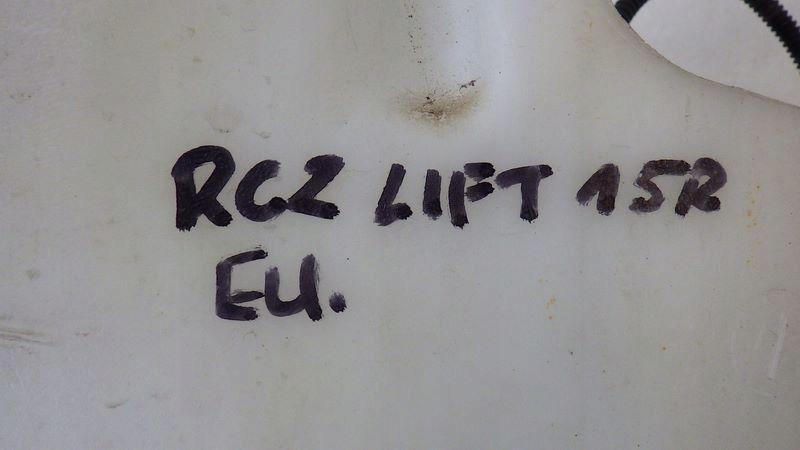 RCZ LIFT 15R
EU.